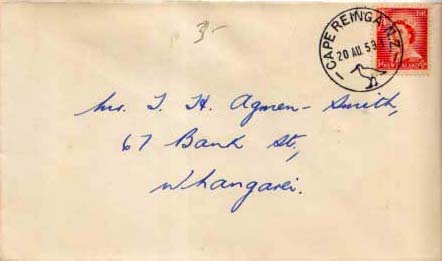 3-
CAPE REINGA. N.Z.
20 AU. 53
Mr. T. H. Agmen-Smith,
67 Bank St.,
Whangarei.